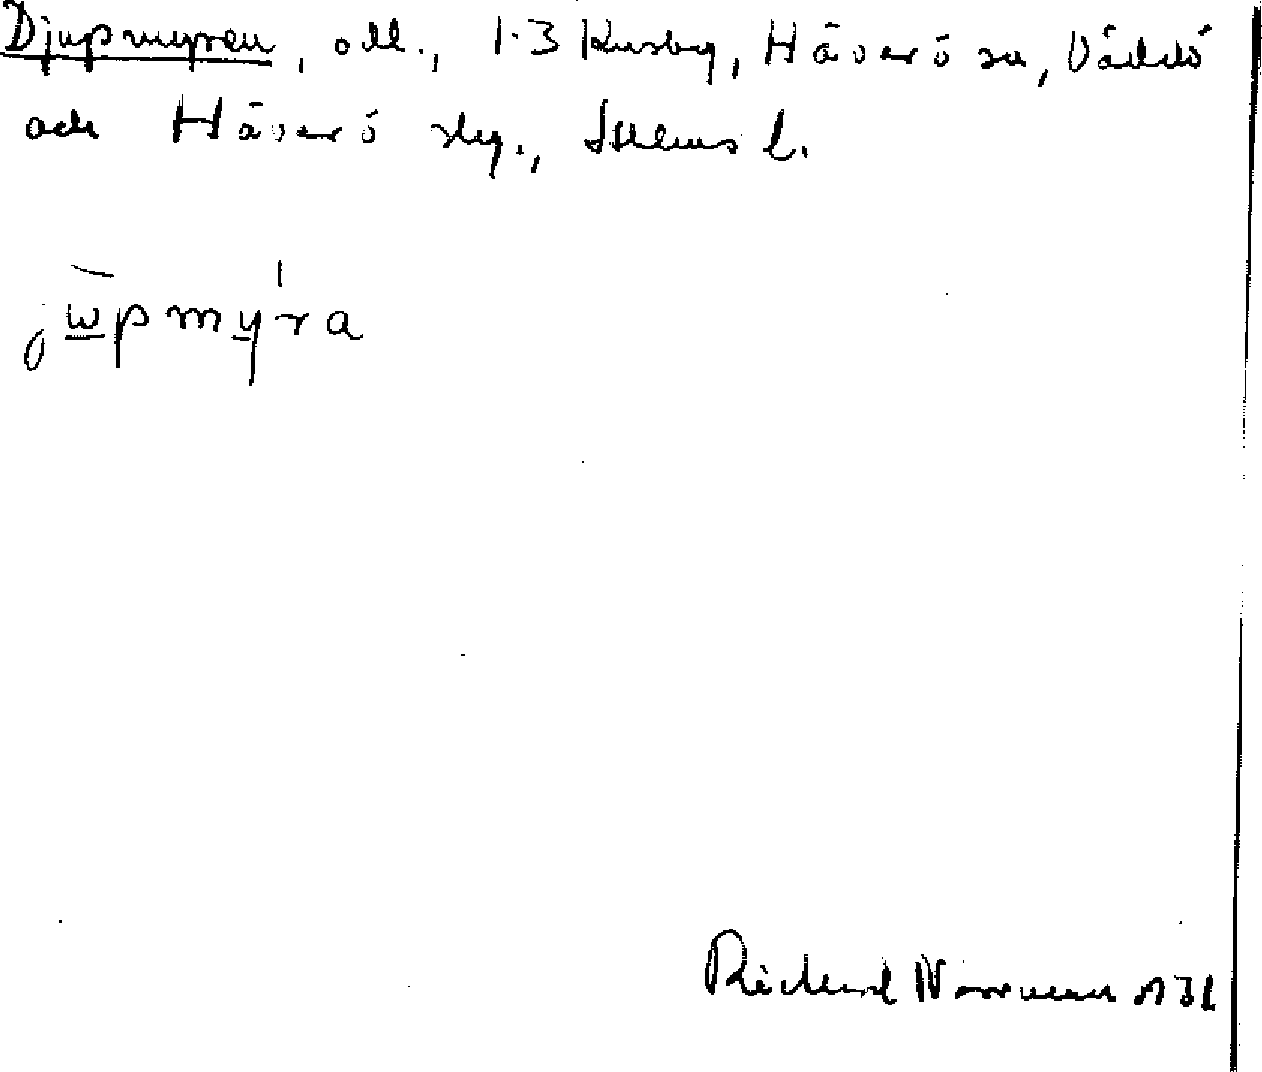 Djupmyren, oll., 1-3 Kusby, Häverö sn, Väddö
och Häverö slg., Sthlms l.
jẁ̲pmý̲ra
Richard Norrman